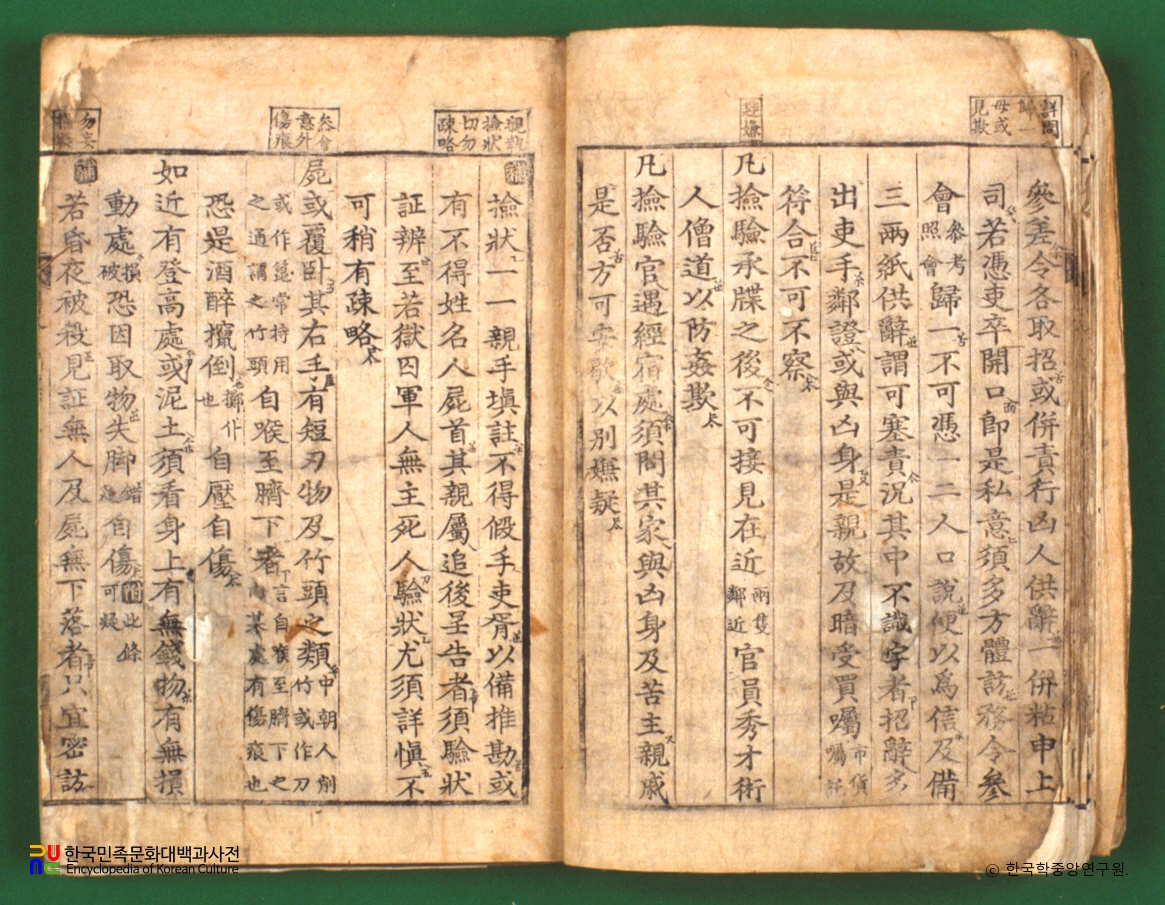 詳問
歸一
母或
見欺
參差令各取招或併責行凶人供辭一併粘申上
司若憑吏卒開口卽是私意須多方體訪務令參
會參考照會歸一不可憑一二人口說便以爲信及備
三兩紙供辭謂可塞責況其中不識字者招辭多
出吏手鄰證或與凶身是親故及暗受買囑市貨囑託
符合不可不察
避嫌
凡撿驗承牒之後不可接見在近兩隻鄰近官員秀才術
人僧道以防姦欺
凡撿驗官遇經宿處須問其家與凶身及苦主親戚
是否方可安歇以別嫌疑
親執
撿狀
切勿
疎略
補
撿狀一一親手塡註不得假手吏胥以備推勘或
有不得姓名人屍首其親屬追後呈告者須驗狀
証辨至若獄囚軍人無主死人驗狀尤須詳愼不
可稍有疎略
參會
意外
傷痕
屍或覆卧其右手有短刃物及竹頭之類中朝人削竹或作刀
或作篦常持用之通謂之竹頭自喉至臍下者下言自喉至臍下之尚某處有傷痕也
恐是酒醉攛倒攛擲仆也自壓自傷
如近有登高處或泥土須看身上有無錢物有無損
動處損被恐因取物失脚錯跌自傷補此條可疑
勿妄
補
若昏夜被殺見証無人及屍無下落者只宜密訪
한국민족문화대백과사전
Encyclopedia of Korean Culture
© 한국학중앙연구원.